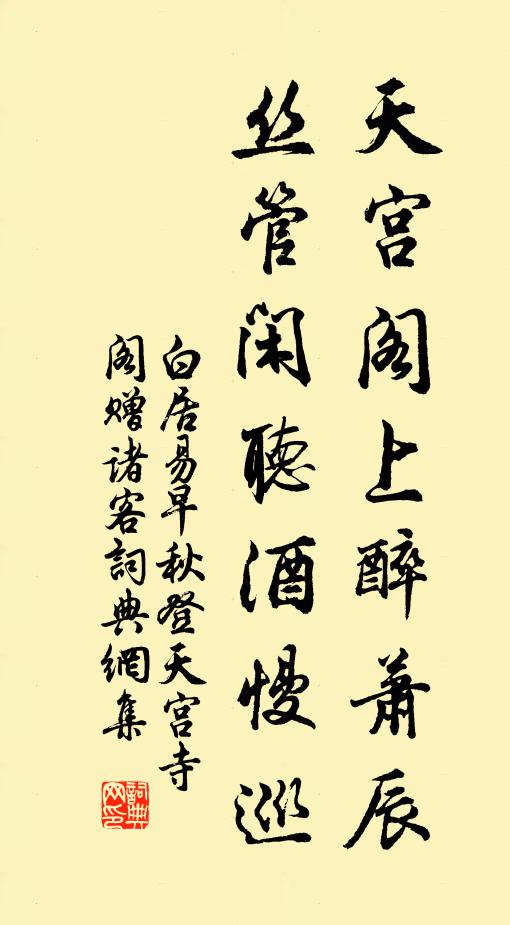 天宫阁上醉萧辰
丝管闲聽酒慢巡
白居易早秋登天宫寺
阁赠诸客詞典網集
詞典网印